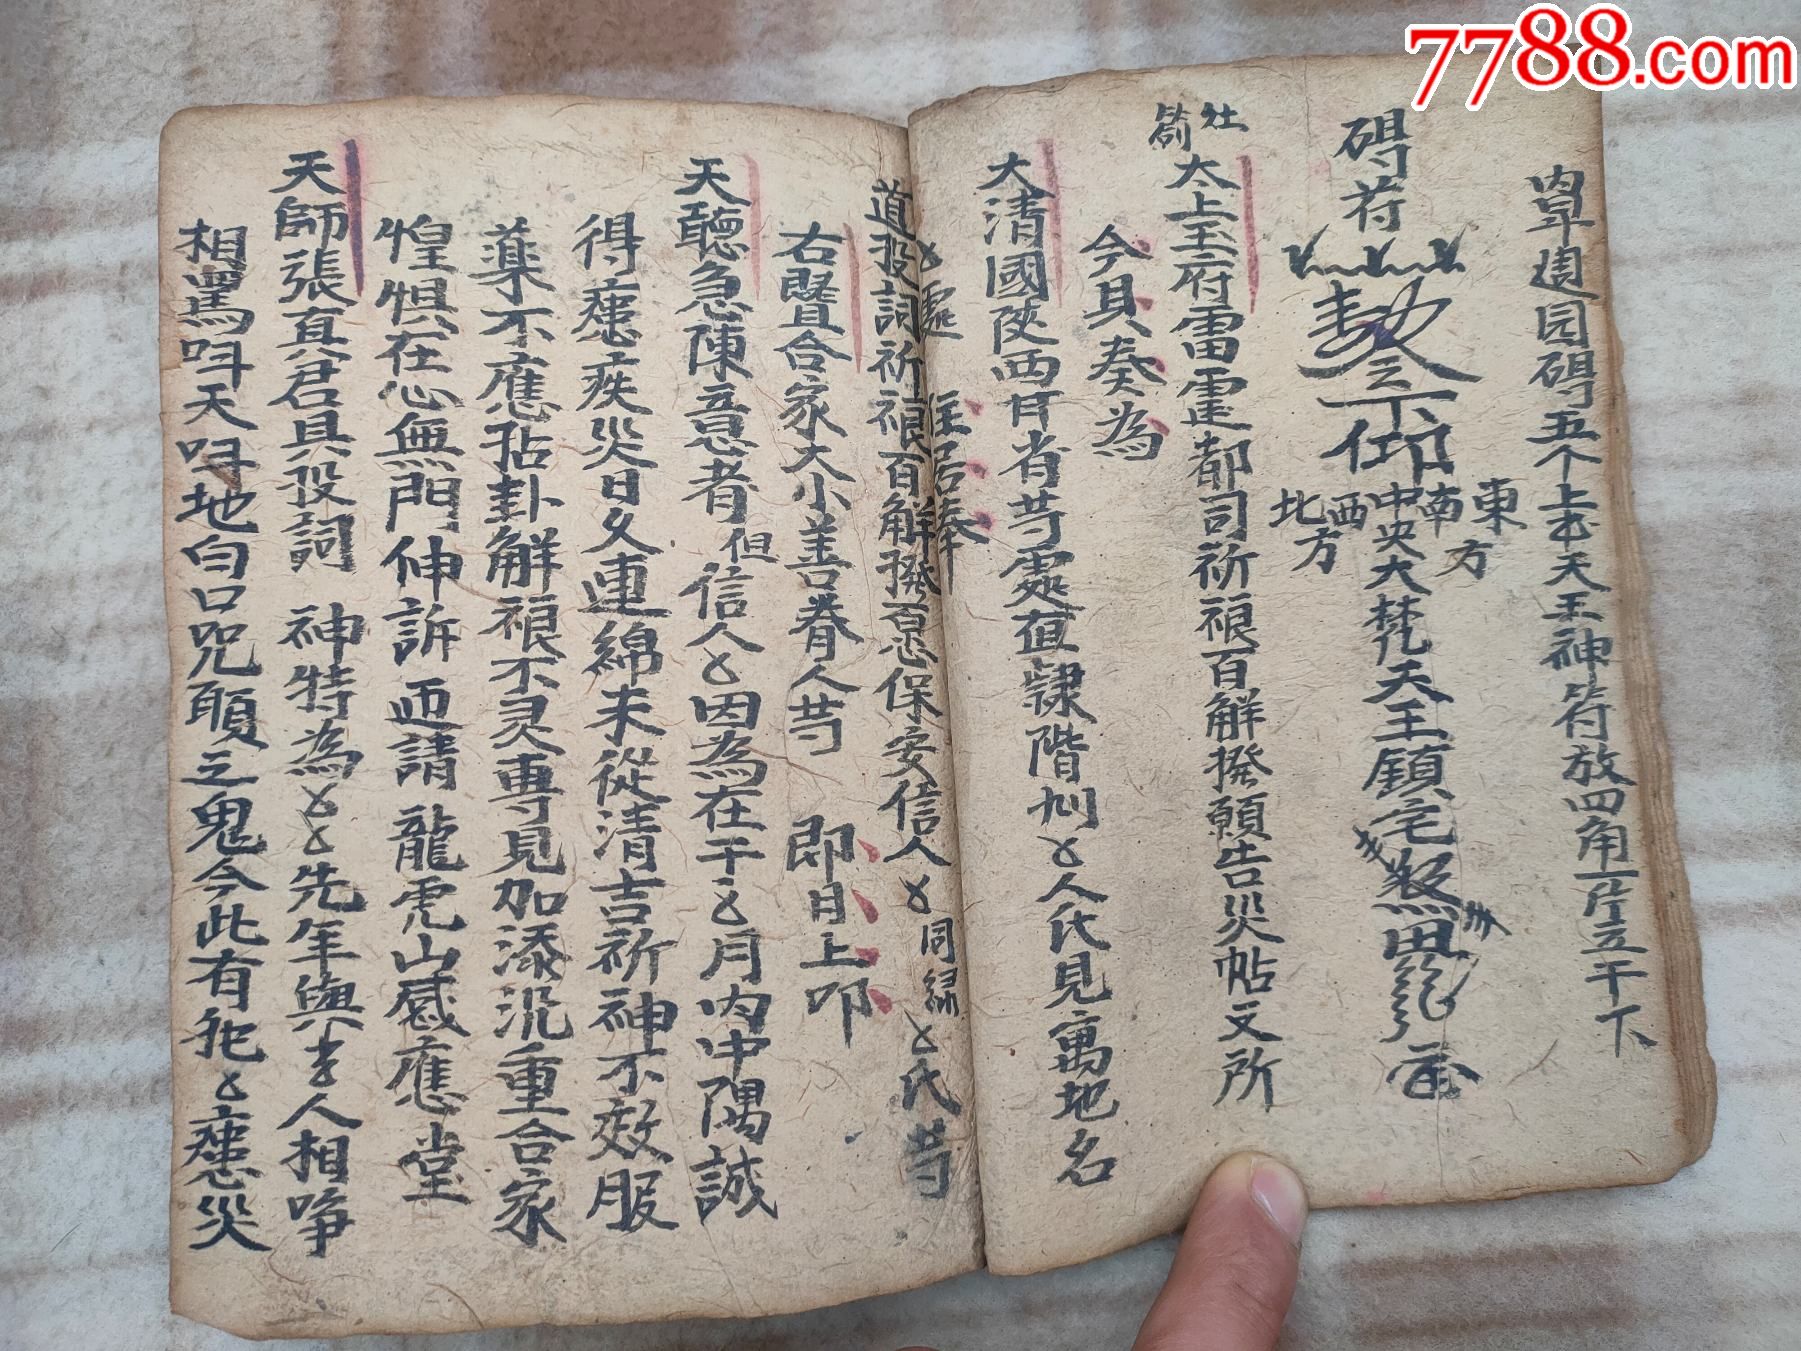 7788.com
磚符
五个上本天王神符放四角一片立于下
仰
東方
南
中央大梵天王鎮宅
西
北方
太上玉府雷霆都司祈禳百解撥願告災帖文所
今具奏為
大清國陝西甘肅等處直隸階州〤人氏見寓地名
〤處 住居奉
道投詞祈禳百解撥百惡保安信人〤同緣〤氏等
右暨合家大小善眷人等 即日上叩
天聽急陳意者但信人〤因為在于〤月内中偶誠
得瘧疾災日久連綿未從清吉祈神不效服
藥不應占卦解禳不灵專見加添沉重合家
惶惧在心無門伸訴 請龍虎山感應堂
天師張真君具投詞 神特為〤〤先年與〤人相爭
相罵呌天呌地白口咒願之鬼今此有犯〤瘧災